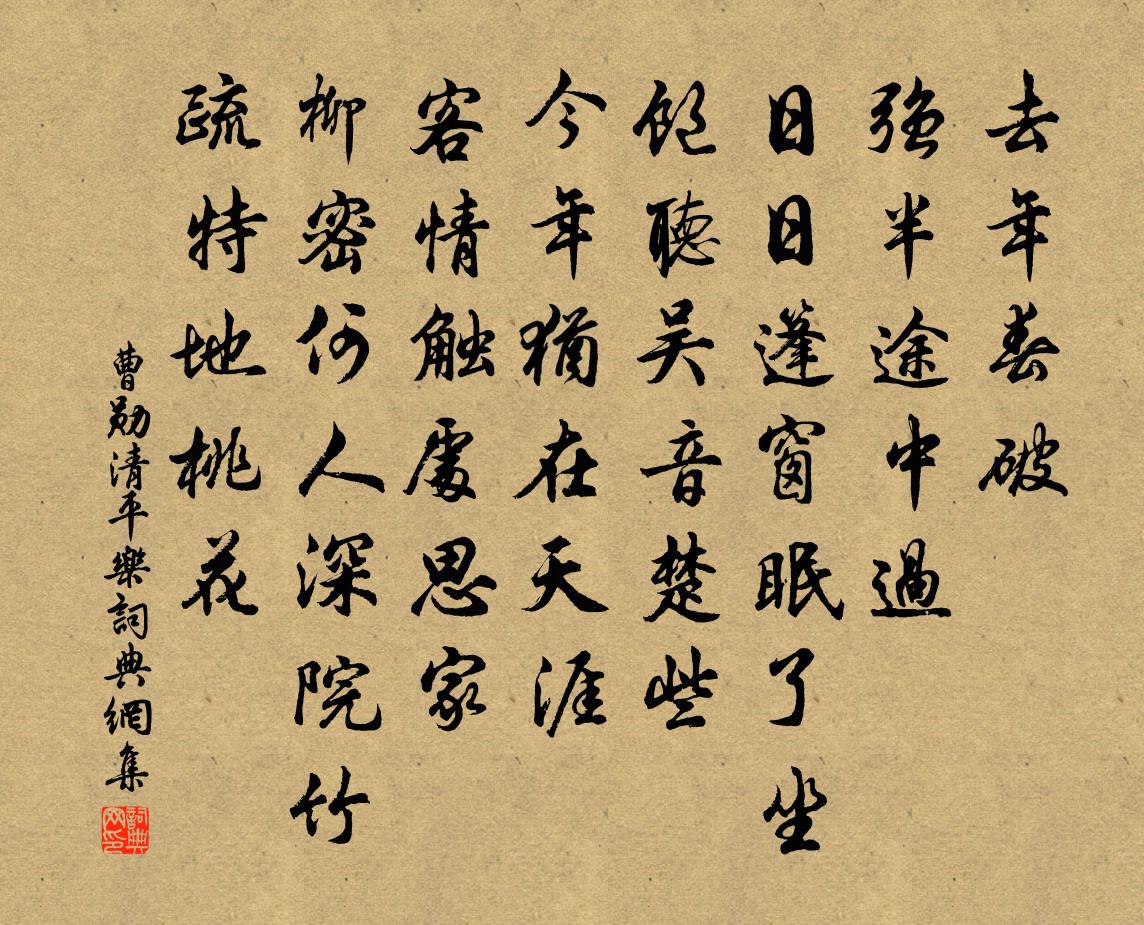 去年春破
強半途中過
日日蓬窗眠了坐
飽聽吳音楚些
今年猶在天涯
客情触處思家
柳密何人深院竹
疏特地桃花
曹勛清平樂詞典網集
詞典网印